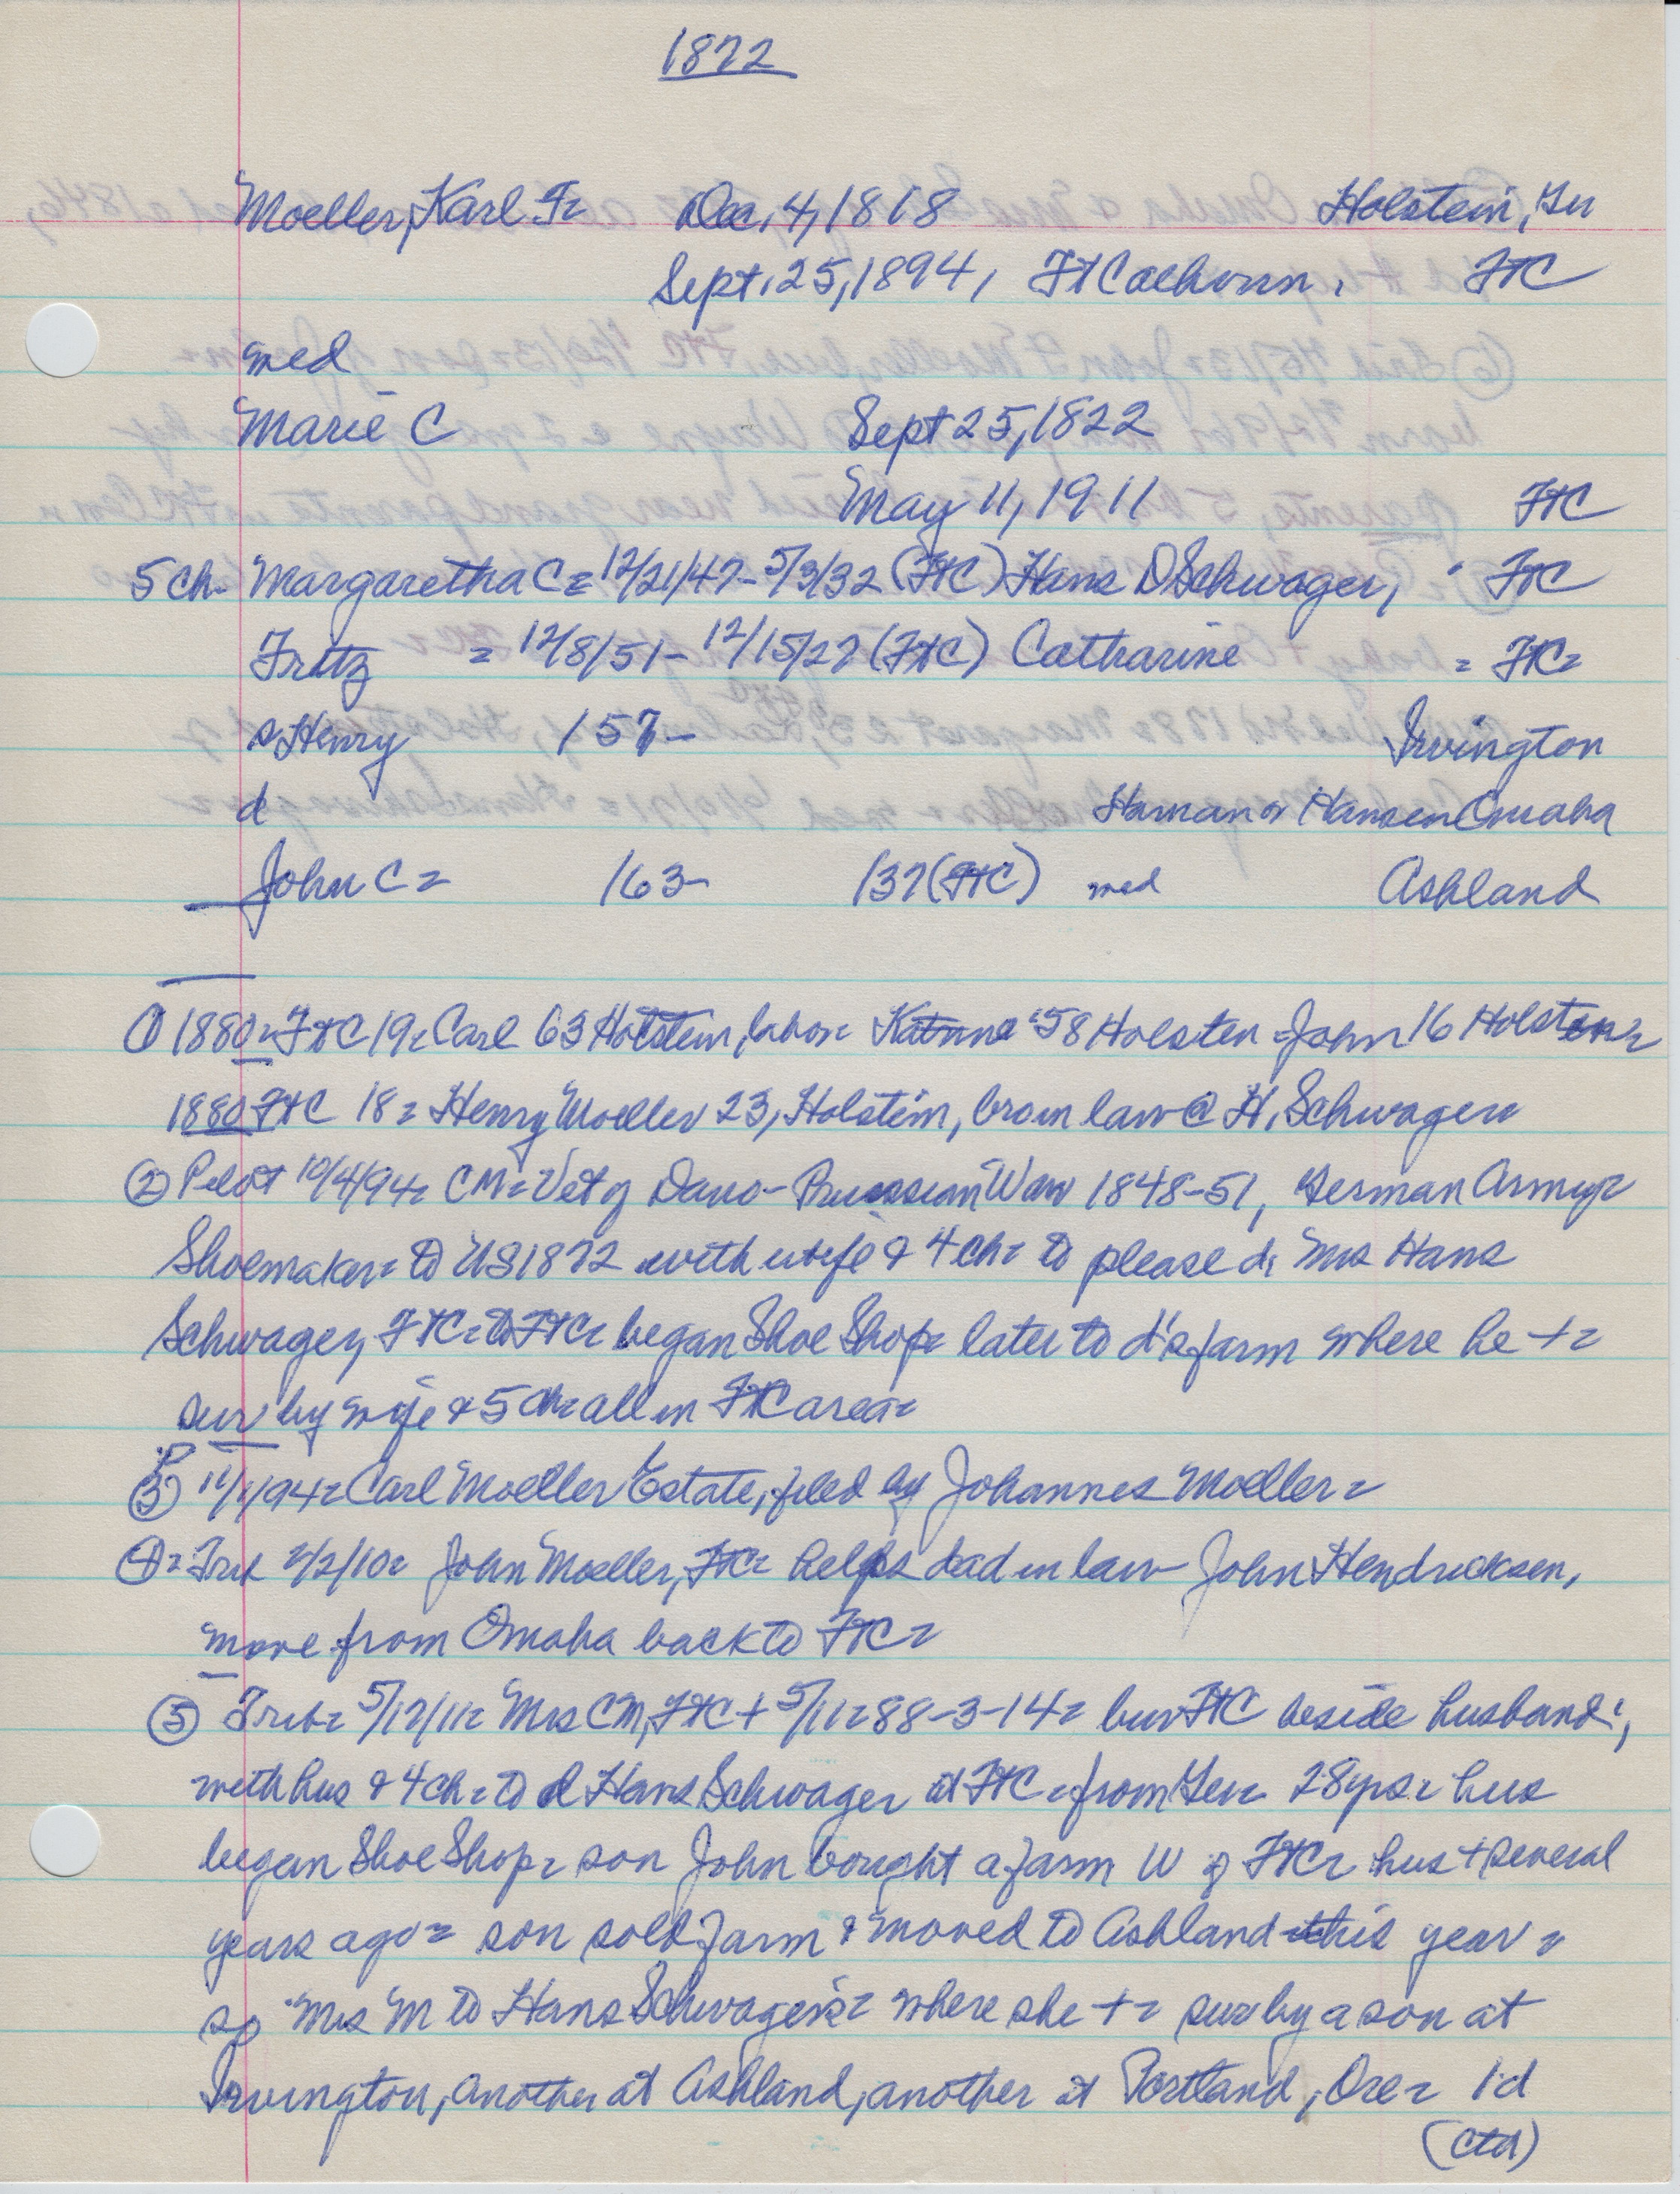 1872
Moeller, Karl F= Dec, 4, 1818 Holstein, Ger
Sept. 25, 1894, Ft Calhoun, FtC
med
Marie C Sept 25, 1822
May 11, 1911 FtC
5 ch. Margaretha C= 12/21/47- 5/3/32 (FtC) Hans D Schwager, FtC
Fritz = 12/8/51- 12/15/27 (FtC) Catharine = FtC=
s Henry / 57- Irvington
d Haman or Hansen Omaha
John C= /63- /37 (FtC) med Ashland
① 1880= FtC 19= Carl 63 Holstein, labor= Katrine 58 Holsten = John 16 Holsten=
1880 FtC 18= Henry Moeller 23, Holstein, bro in law @ H, Schwager=
② Pilot 10/4/94= CM= Vet of Dano-Prussian War 1848-51, German Army=
Shoemaker= to US 1872 with wife & 4 ch= to please d, Mrs Hans
Schwager, FtC= to FtC= began Shoe Shop= later to d's farm where he +=
sur by wife & 5 ch= all in FtC area=
P
③ 11/1/94= Carl Moeller Estate, filed by Johannes Moeller=
④= Trib 2/2/10= John Moeller, FtC= helps dad in law John Hendricksen,
move from Omaha back to FtC=
⑤ Trib= 5/12/11= Mrs CM, FtC + 5/11= 88-3-14= bur FtC beside husband,
with hus & 4 ch= to d Hans Schwager at FtC= from Ger= 28 yrs= hus
began Shoe Shop= son John bought a farm W of FtC= hus + several
years ago= son sold farm & moved to Ashland this year=
so Mrs M to Hans Schwager's= where she += sur by a son at
Irvington, another at Ashland, another at Portland, Ore= 1 d
(ctd)